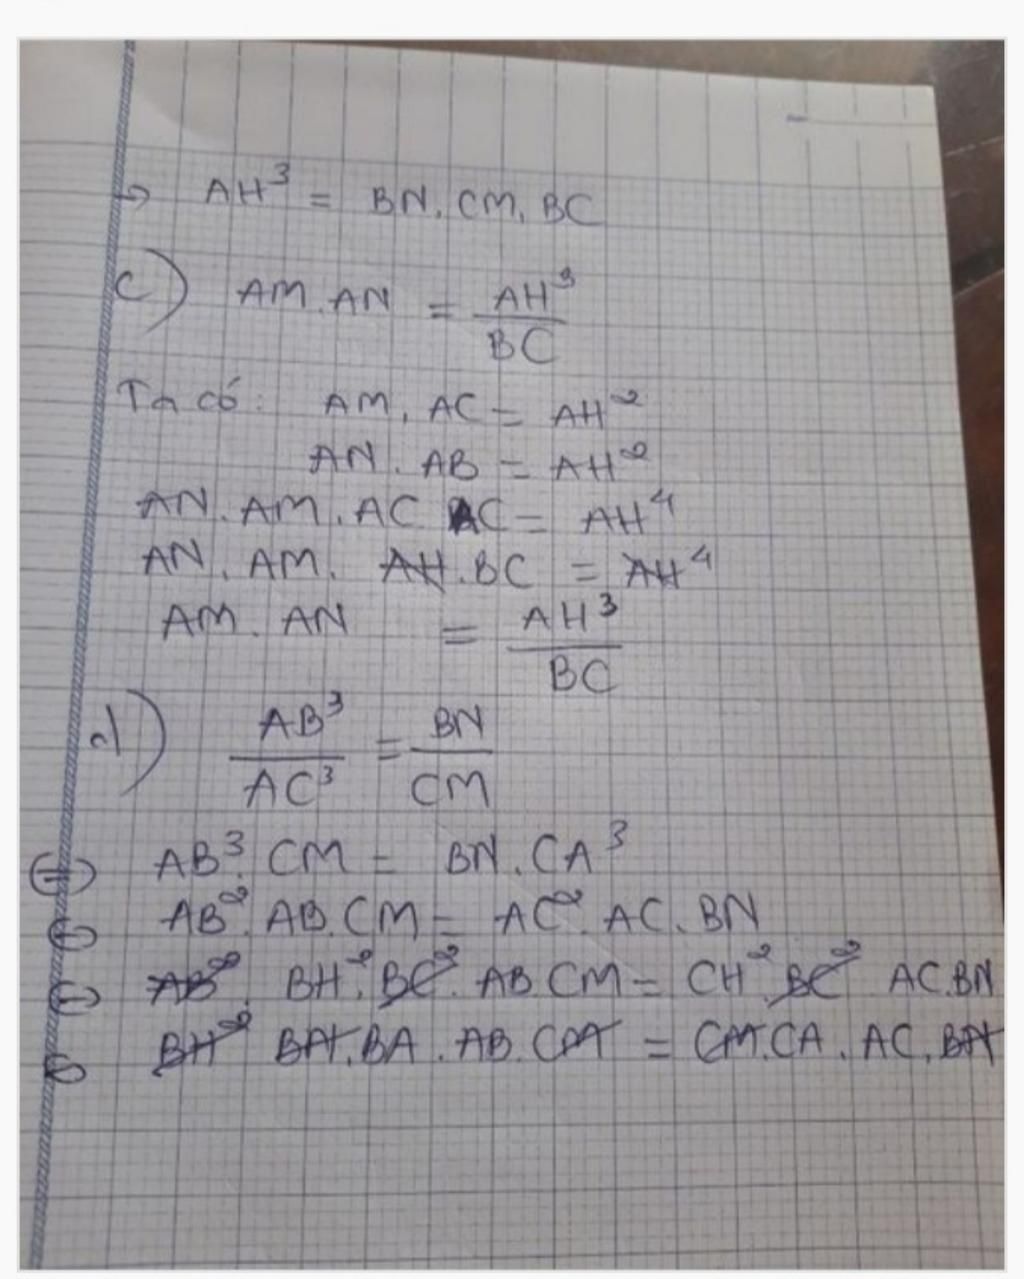 → AH³ = BN. CM. BC
c) AM. AN = AH³/BC
Ta có: AM. AC = AH²
AN. AB = AH²
AN. AM. AC AC = AH⁴
AN. AM. AH. BC = AH⁴
AM. AN = AH³/BC
d) AB³/AC³ = BN/CM
⇔ AB³. CM = BN. CA³
⇔ AB². AB. CM = AC². AC. BN
⇔ AB². BH². BC². AB. CM = CH². BC² AC. BN
⇔ BH² BN. BA. AB. CM = CM. CA. AC. BN